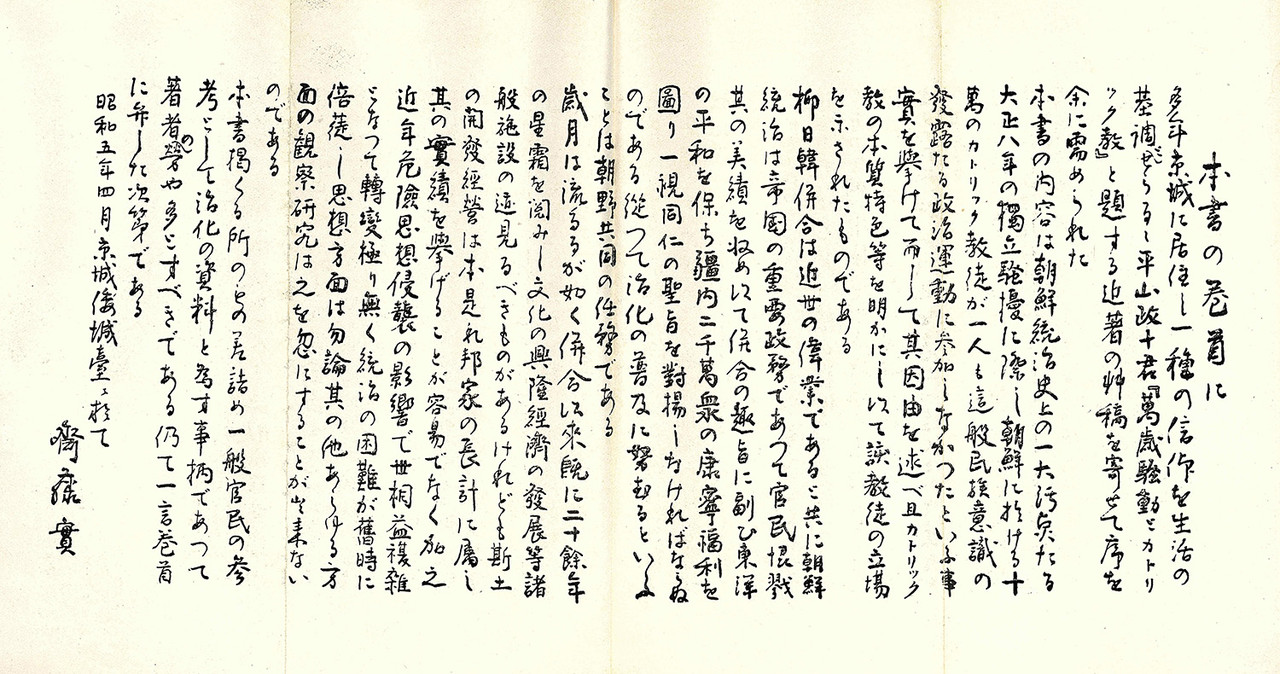 本書の巻首に
多年京城に居住し一種の信仰を生活の
基調とせらるゝ平山政十君『萬歳騒動とカトリ
ック教』と題する近著の艸稿を寄せて序を
余に需められた
本書の内容は朝鮮統治史上の一大汚点たる
大正八年の獨立騒擾に際し朝鮮に於ける十
萬のカトリック教徒が一人も這般民族意識の
發露たる政治運動に参加しなかつたといふ事
實を擧げて而して其因由を述べ且カトリック
教の本質特色等を明かにし以て該教徒の立場
を示されたものである
抑日韓併合は近世の偉業であると共に朝鮮
統治は帝國の重要政務であつて官民恨戮
其の美績を収め以て併合の趣旨に副ひ東洋
の平和を保ち疆内二千萬衆の康寧福利を
圖り一視同仁の聖旨を對揚しなければならぬ
のである從つて治化の普及に努むるといふ
ことは朝野共同の任務である
歳月は流るゝが如く併合以來既に二十餘年
の星霜を閲みし文化の興隆經濟の發展等諸
般施設の迹見るべきものがあるけれども斯土
の開發經營は本是れ邦家の長計に属し
其の實績を擧げることが容易でなく加之
近年危險思想侵襲の影響で世相益複雜
となつて轉變極り無く統治の困難が舊時に
倍徒し思想方面は勿論其の他あらゆる方
面の觀察研究は之を忽にすることが出来ない
のである
本書掲くる所のもの差詰め一般官民の参
考として治化の資料と為す事柄であつて
著者の勞や多とすべきである仍て一言巻首
に弁した次第である
昭和五年四月京城倭城臺に於て
齋藤實